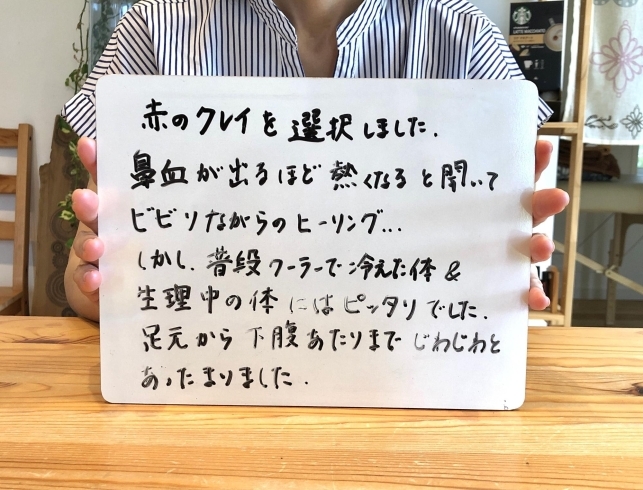 赤のクレイを選択しました.
鼻血が出るほど熱くなると聞いて
ビビリながらのヒーリング...
しかし、普段クーラーで冷えた体&
生理中の体にはピッタリでした.
足元から下腹あたりまでじわじわと
あったまりました.